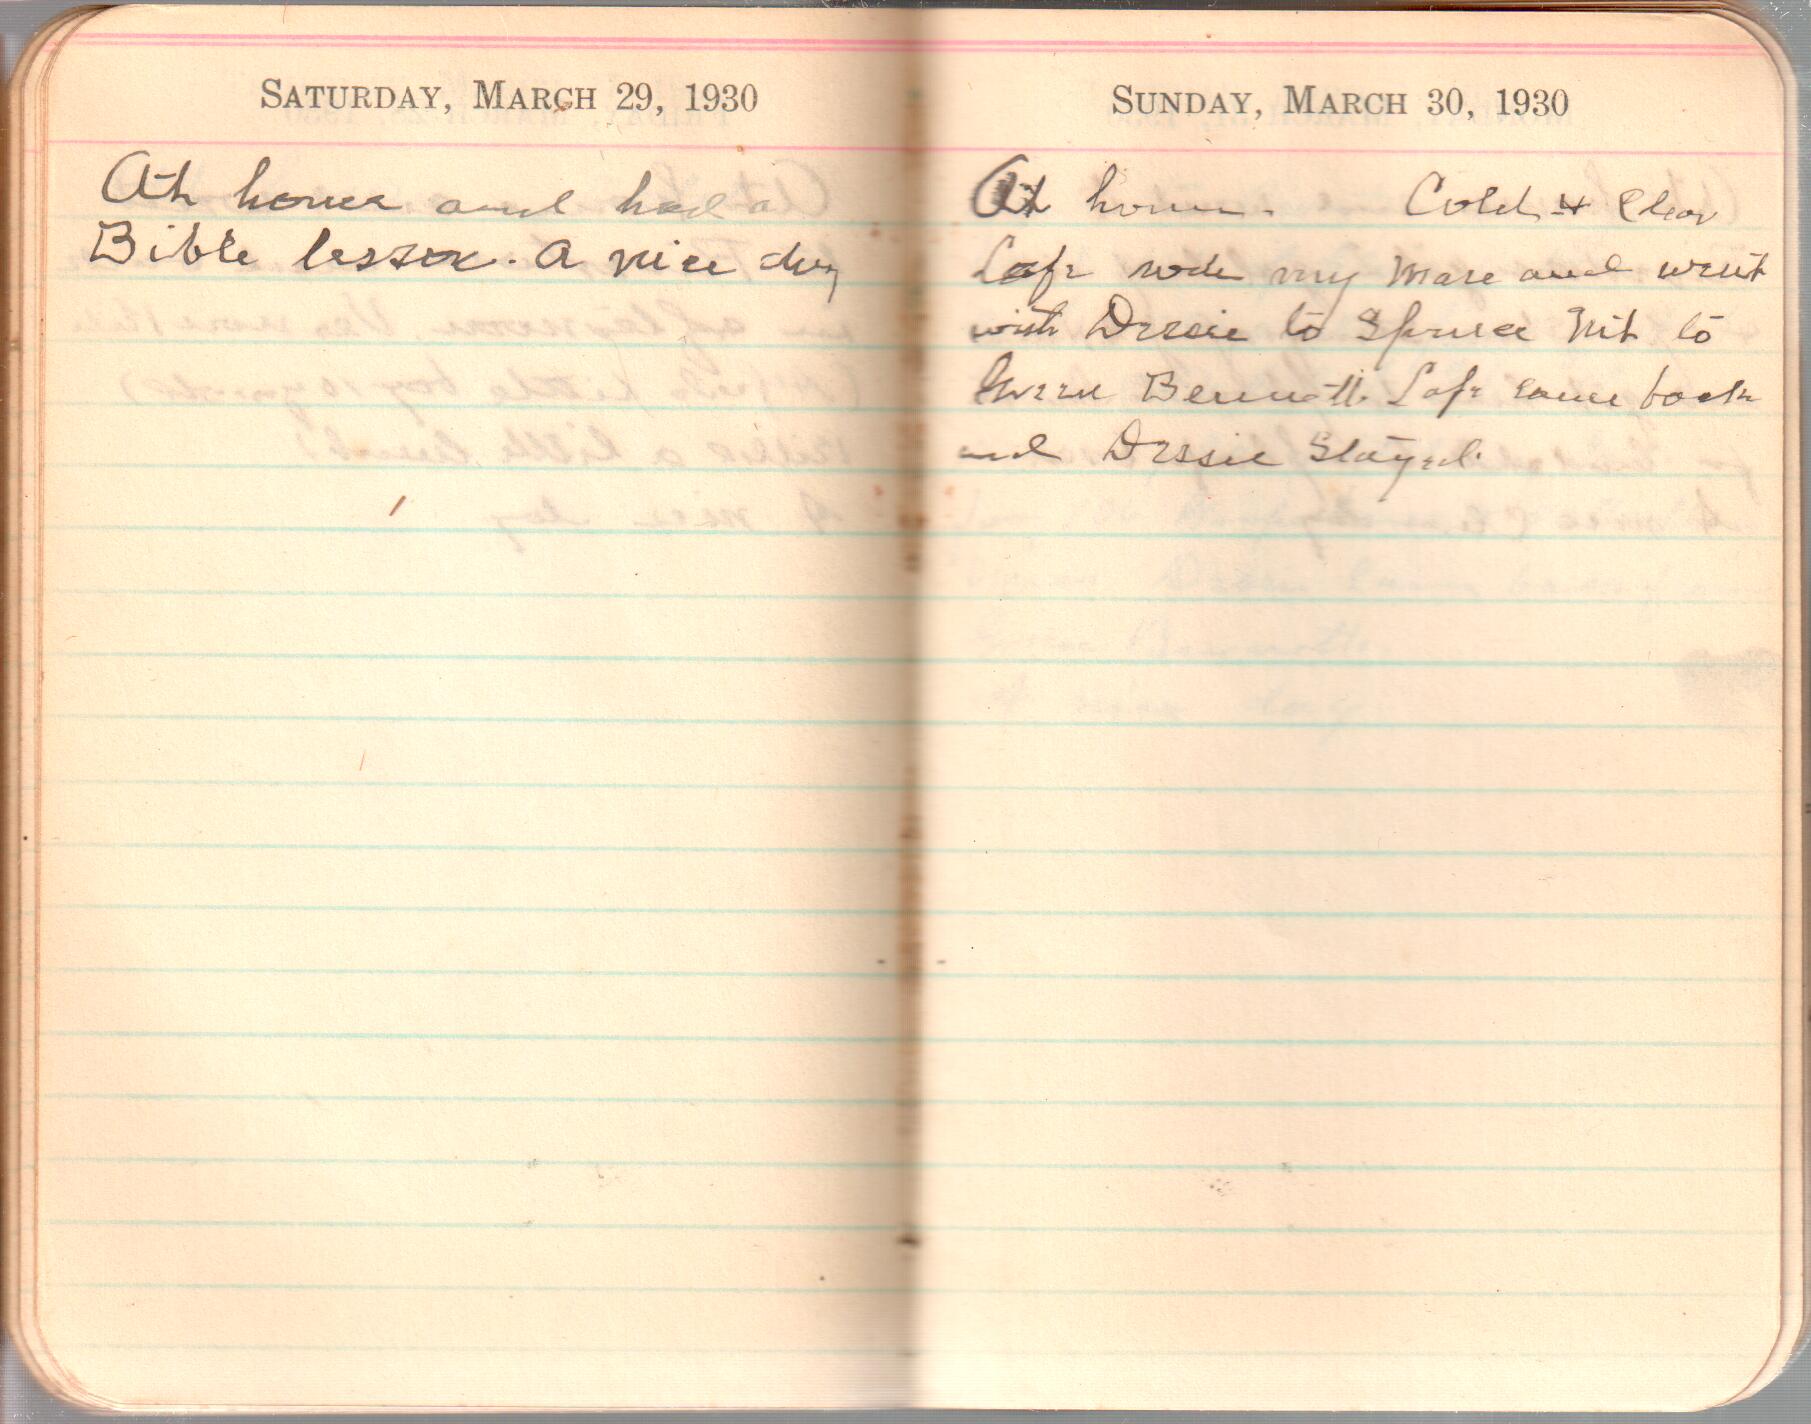 SATURDAY, MARCH 29, 1930
At home and had a
Bible lesson. A nice day
SUNDAY, MARCH 30, 1930
At home. Cold & Clear
Lafe rode my Mare and went
with Dessie to Spruce Mt to
Bennett Lafe came back
and Dessie Stayed.